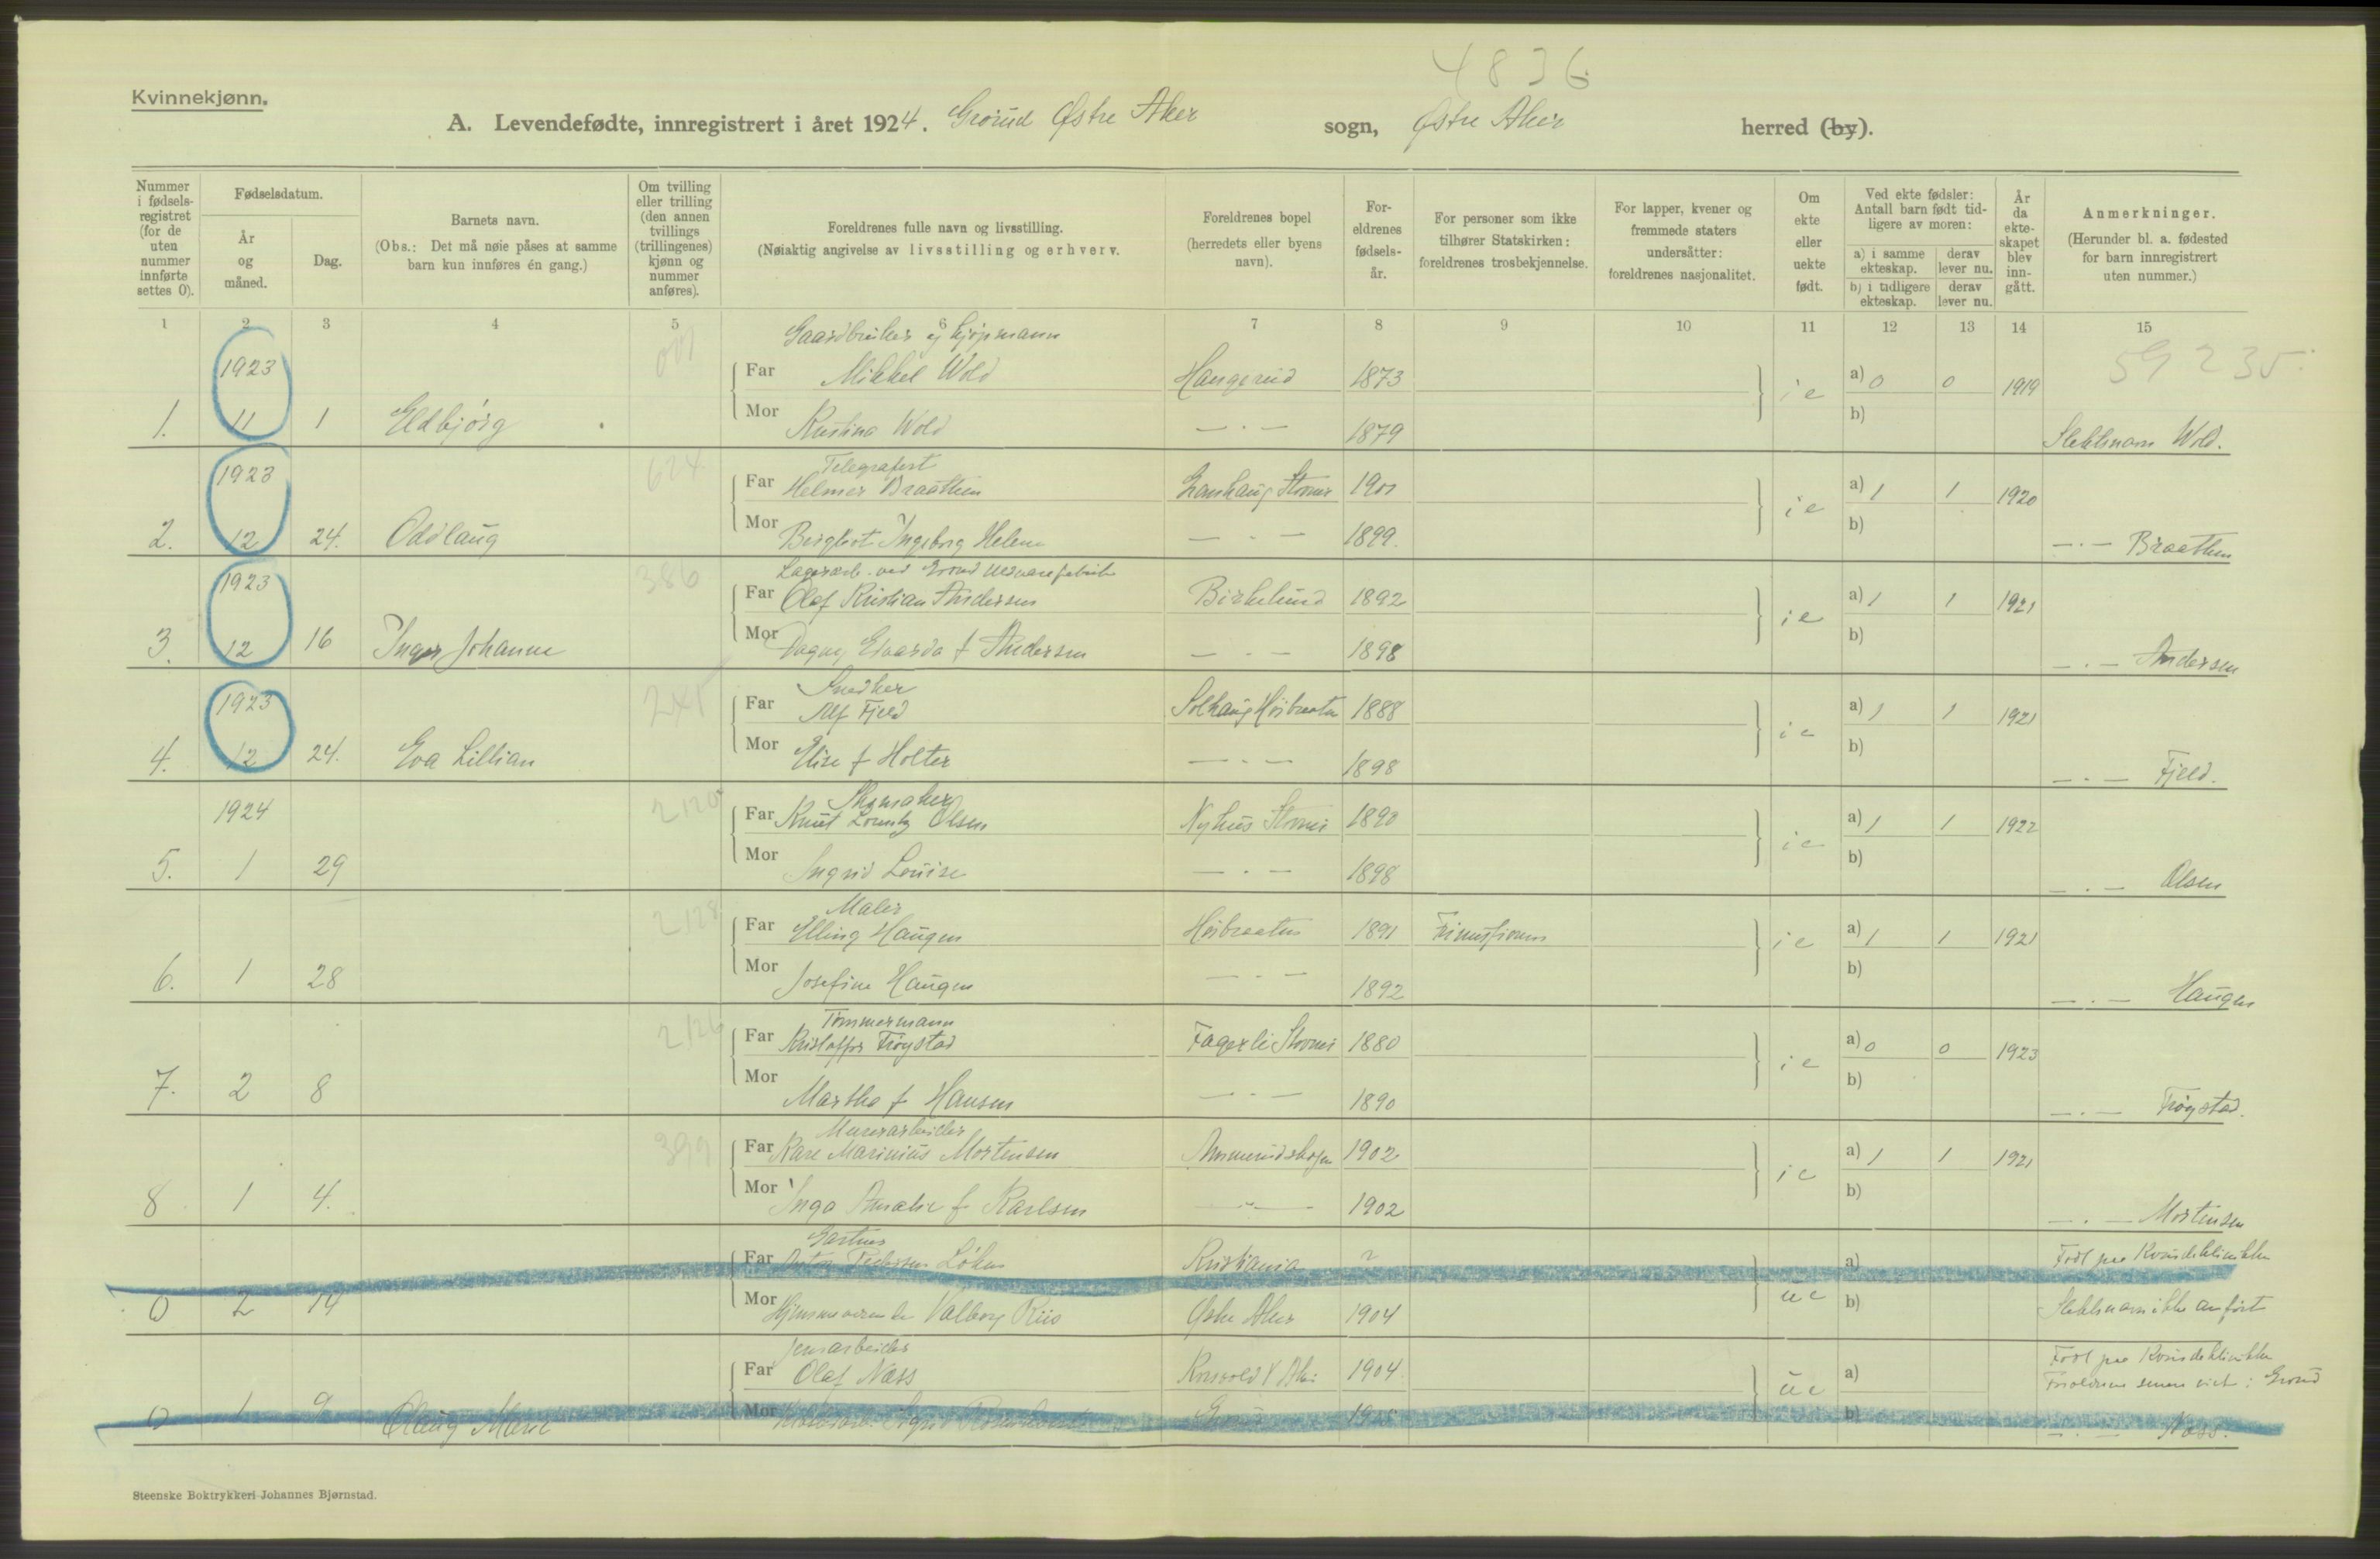 4836
Kvinnekjønn.
A. Levendefødte, innregistrert i året 1924. Grorud Østre Aker sogn, Østre Aker herred (by).
Nummer i fødselsregistret (for de uten nummer innførte settes 0).
Fødselsdatum.
År og måned.
Dag.
Barnets navn.
(Obs.: Det må nøie påses at samme barn kun innføres én gang.)
Om tvilling eller trilling (den annen tvillings (trillingenes) kjønn og nummer anføres).
Foreldrenes fulle navn og livsstilling.
(Nøiaktig angivelse av livsstilling og erhverv.
Foreldrenes bopel (herredets eller byens navn).
Foreldrenes fødselsår.
For personer som ikke tilhører Statskirken: foreldrenes trosbekjennelse.
For lapper, kvener og fremmede staters undersåtter: foreldrenes nasjonalitet.
Om ekte eller uekte født.
Ved ekte fødsler: Antall barn født tidligere av moren:
a) i samme ekteskap. derav lever nu.
b) i tidligere ekteskap. derav lever nu.
År da ekteskapet blev inngått.
Anmerkninger.
(Herunder bl. a. fødested for barn innregistrert uten nummer.)
1 2 3 4 5 6 7 8 9 10 11 12 13 14 15
Gaardbruker og kjøpmann
1923 Far Mikkel Wold Haugerud 1873 i e a) 0 0 1919 59235
1. 11 1 Eldbjörg Mor Kristina Wold — · — 1879 b) Slektsnavn Wold.
Telegrafist
1923 624 Far Helmer Braathen Stovner i e a) 1 1 1920
2. 12 24. Oddlaug Mor Bergliot Ingeborg Helene — · — 1899. b) — · — Braathen
1923 386 Far Olaf Kristian Andersen Birkelund 1892 i e a) 1 1 1921
3. 12 16 Inger Johanne Mor Dagny Edvarda f Andersen — · — 1898 b) — · — Andersen
Snedker
1923 Far Alf Fjeld Solhaug Høibraaten 1888 i e a) 1 1 1921
4. 12 24. Eva Lillian Mor Elise f Holter — · — 1898 b) — · — Fjeld.
Skomaker
1924 2120 Far Knut Olsen Nyhus Stovner 1890 i e a) 1 1 1922
5. 1 29 Mor Ingrid Louise — · — 1898 b) — · — Olsen
Maler
2128 Far Elling Haugen Høibraaten 1891 i e a) 1 1 1921
6. 1 28 Mor Josefine Haugen — · — 1892 b) — · — Haugen
Tömmermann
2126 Far Kristoffer Frøystad Fagerli Stovner 1880 i e a) 0 0 1923
7. 2 8 Mor Martha f Hansen — · — 1890 b) — · — Frøystad.
Murerarbeider
399 Far Kåre Marinius Mortensen Ammerudskogen 1902 i e a) 1 1 1921
8 1 4. Mor Inga Amalie f Karlsen — · — 1902 b) — · — Mortensen
Gartner
Far Anton Løken Kristiania ? u e a) Født paa Kvindeklinikken
0 2 14 Mor Hjemmeværende Valborg Riis Østre Aker 1904 b) Slektsnavn ikke anført
Jernarbeider
Far Olaf Næss 1904 u e a) Født paa Kvindeklinikken
Forældrene senere viet i Grorud
0 1 9 Olaug Marie Mor Grorud b) — · — Næss.
Steenske Boktrykkeri Johannes Bjørnstad.